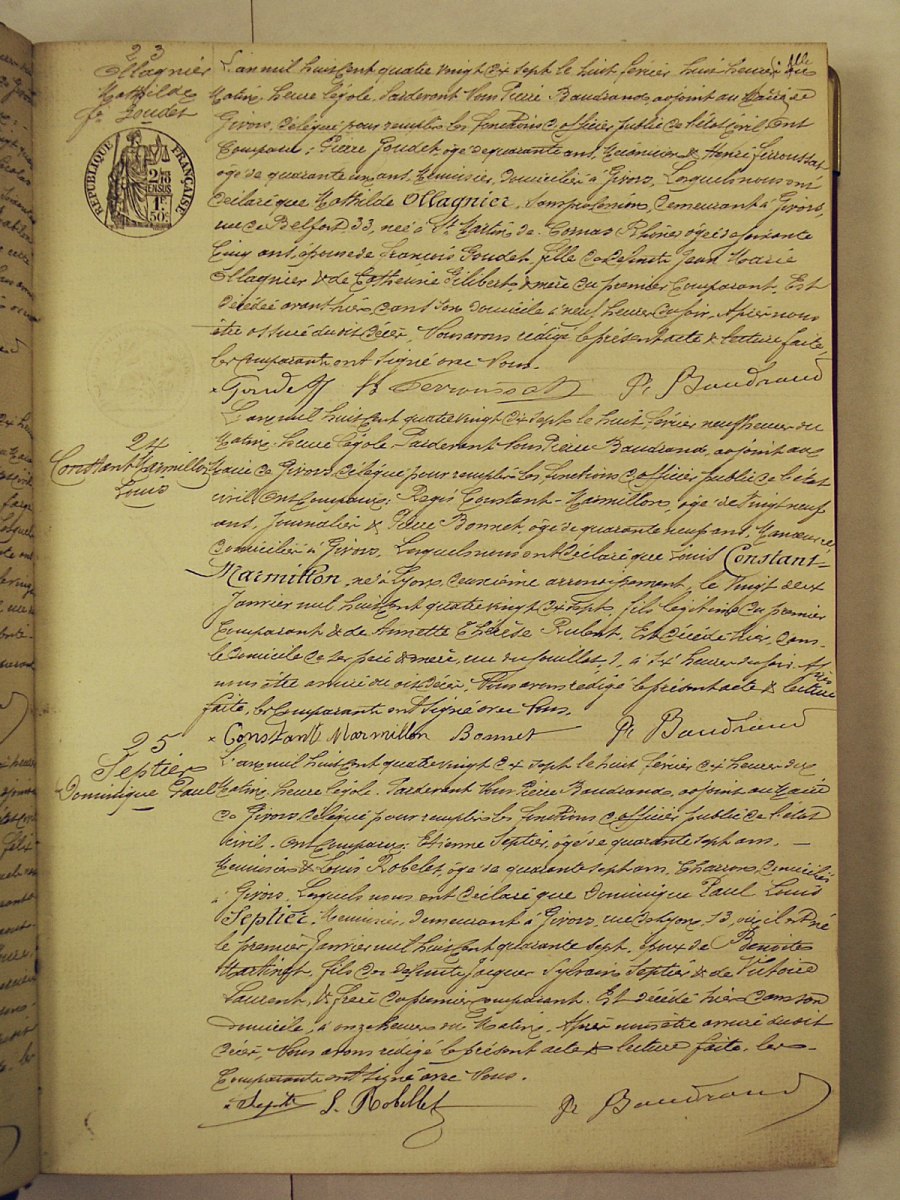 23
Ollagnier
Mathilde
fe Goudet
RÉPUBLIQUE FRANÇAISE
2/10
EN SUS
1F
50c
L'an mil huit cent quatre vingt dix sept le huit février huit heures du
Matin, heure légale, Pardevant Nous Pierre Baudrand, adjoint au Maire de
Givors, délégué pour remplir les fonctions d'officier public de l'état civil, Ont
Comparu : Pierre Goudet, âgé de quarante ans, & Henri
âgé de quarante ans, Menuisier, domiciliés à Givors, Lesquels nous ont
déclaré que Mathilde Ollagnier, Sans profession, demeurant à Givors,
rue de Belfort, 33, née à St Martin de Cornas Rhône âgée de soixante
Cinq ans, épouse de François Goudet, fille de défunts Jean Marie
Ollagnier & de Catherine Gilibert & mère du premier Comparant, Est
décédée avant hier, dans son domicile à neuf heures du soir, Après nous
être assuré du dit décès, Nous avons rédigé le présent acte & lecture faite,
les Comparants ont signé avec Nous.
Goudet Pe Baudrand
24
Constant Marmillon
Louis
L'an mil huit cent quatre vingt dix sept le huit février neuf heures du
Matin, heure légale, Pardevant Nous Pierre Baudrand, adjoint au
Maire de Givors, délégué pour remplir les fonctions d'officier public de l'état
civil, Ont Comparu : Régis Constant-Marmillon, âgé de vingt neuf
ans, Journalier & Pierre Bonnet, âgé de quarante neuf ans, Manœuvre
domiciliés à Givors, Lesquels nous ont déclaré que Louis Constant-
Marmillon, né à Lyon, deuxième arrondissement, le vingt deux
Janvier mil huit cent quatre vingt dix sept, fils légitime du premier
Comparant & de Annette Thérèse, Est décédé hier, dans
le domicile de ses père & mère, rue, 1, à heures du soir. Après
nous être assuré du dit décès, Nous avons rédigé le présent acte & lecture
faite, les Comparants ont signé avec Nous.
Constant Marmillon Bonnet Pe Baudrand
25
Septier
Dominique Paul
L'an mil huit cent quatre vingt dix sept le huit février dix heures du
Matin, heure légale, Pardevant Nous Pierre Baudrand, adjoint au Maire
de Givors, délégué pour remplir les fonctions d'officier public de l'état
civil. Ont Comparu : Etienne Septier, âgé de quarante sept ans,
Menuisier & Louis Robelet, âgé de quarante sept ans, Charron, domiciliés
à Givors, Lesquels nous ont déclaré que Dominique Paul Louis
Septier, Menuisier, demeurant à Givors, rue de Lyon, 13, où il est né
le premier Janvier mil huit cent quarante sept, époux de Benoite
fils de défunts Jacques Sylvain Septier & de Victoire
Laurent, & frère du premier comparant. Est décédé hier dans son
domicile, à onze heures du Matin, Après nous être assuré du dit
décès, Nous avons rédigé le présent acte & lecture faite, les
Comparants ont signé avec Nous.
Septier L. Robellet Pe Baudrand